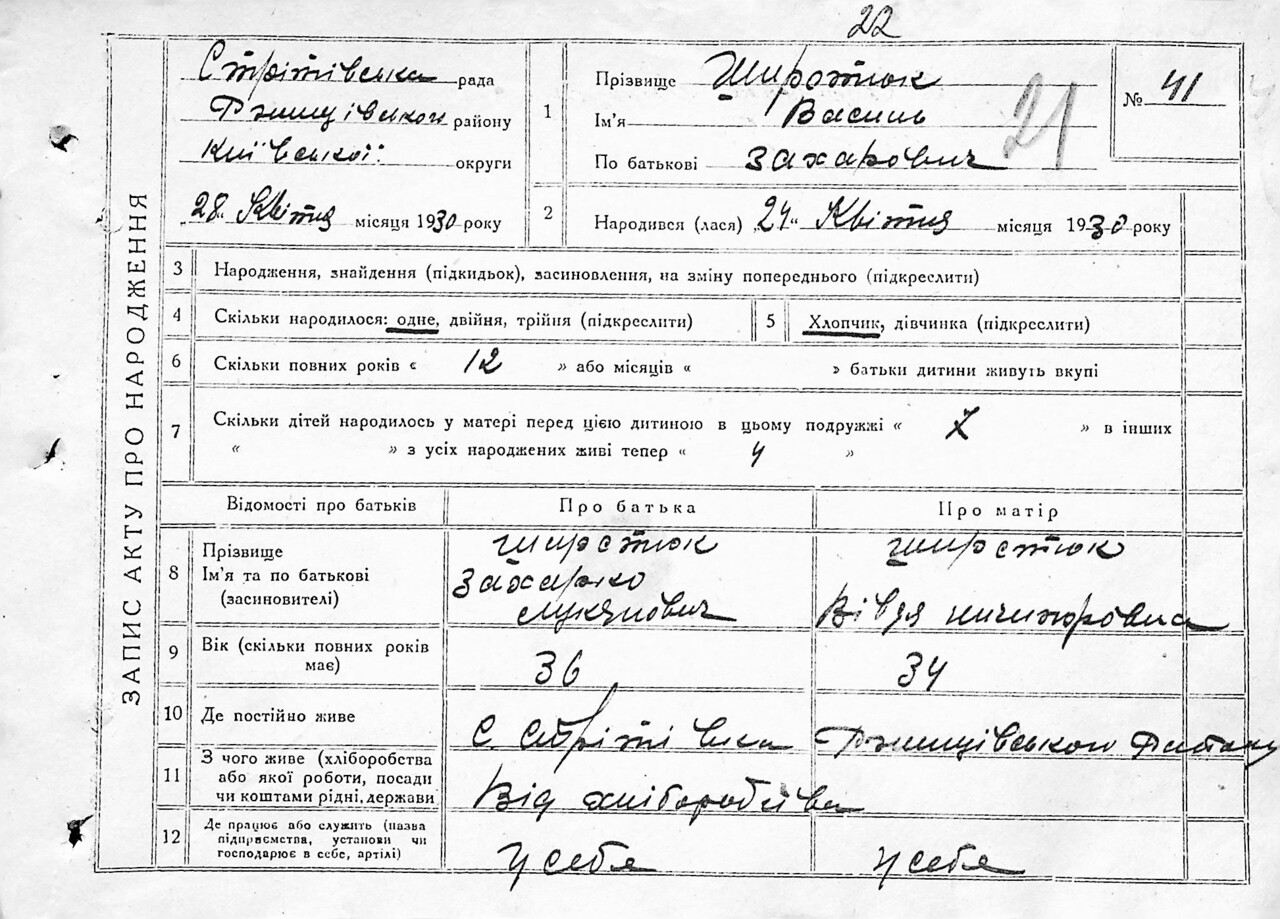 22
21
ЗАПИС АКТУ ПРО НАРОДЖЕННЯ
Стрітівська рада
Ржищівського району
Київської округи
28 Квітня місяця 1930 року
1 Прізвище Широтюк
Ім'я Василь
По батькові Захарович
№ 41
2 Народився (лася) „24“ Квітня місяця 1930 року
3 Народження, знайдення (підкидьок), засиновлення, на зміну попереднього (підкреслити)
4 Скільки народилося: одне, двійня, трійня (підкреслити)
5 Хлопчик, дівчинка (підкреслити)
6 Скільки повних років « 12 » або місяців « » батьки дитини живуть вкупі
7 Скільки дітей народилось у матері перед цією дитиною в цьому подружжі « » в інших
« » з усіх народжених живі тепер « 4 »
Відомості про батьків Про батька Про матір
8 Прізвище Широтюк Широтюк
Ім'я та по батькові Захарко
(засиновителі) Лукянович Вівдя Ничипоровна
9 Вік (скільки повних років має) 36 34
10 Де постійно живе С. Стрітівка Ржищівського
11 З чого живе (хліборобства
або якої роботи, посади
чи коштами рідні, держави Від хліборобства
12 Де працює або служить (назва
підприємства, установи чи
господарює в себе, артілі) у себе у себе